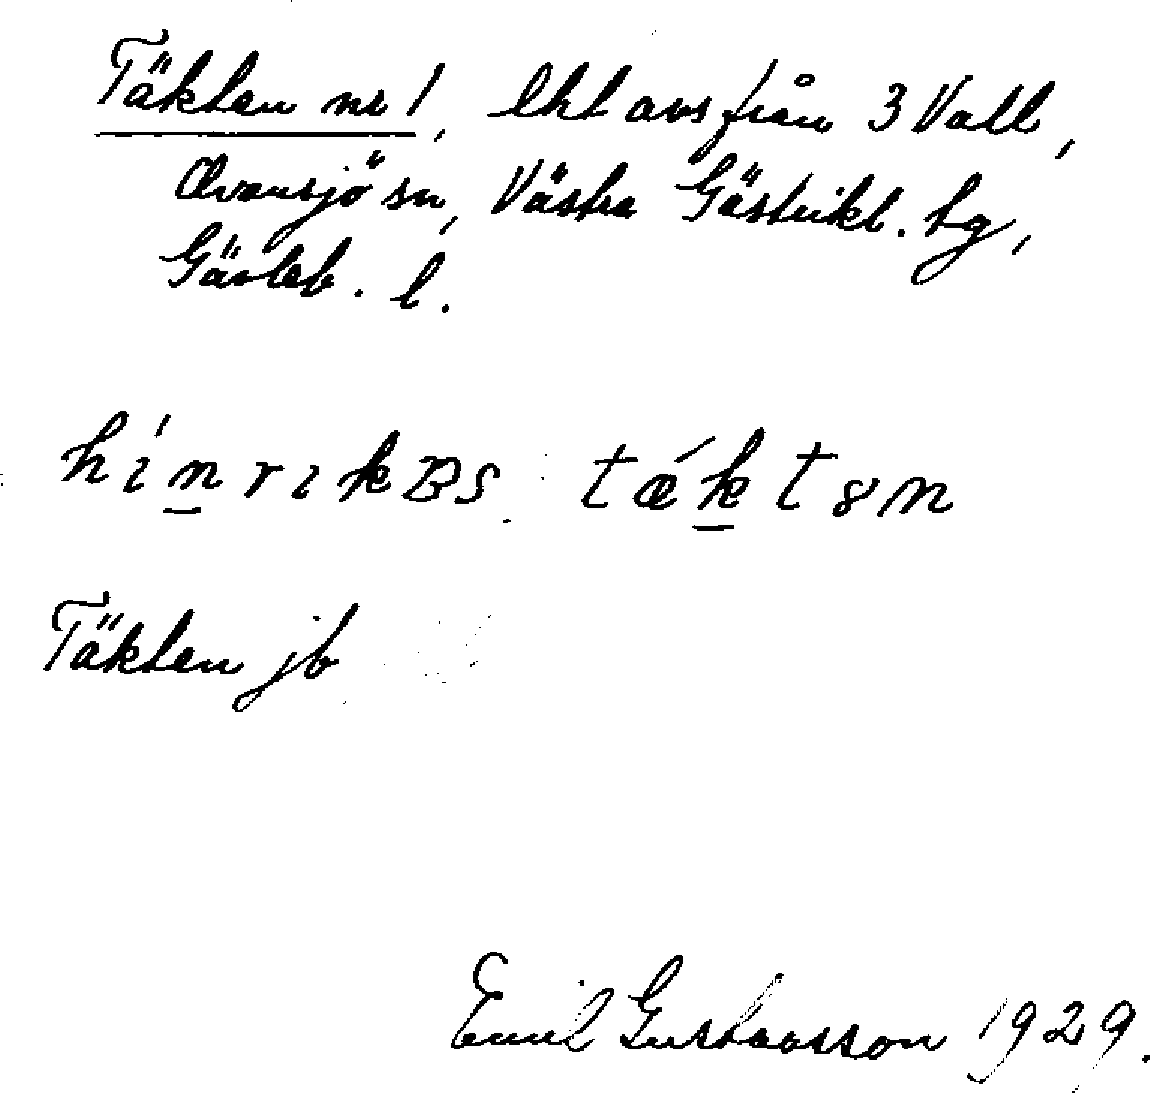 Täkten nr 1, lht avs från 3 Vall,
Ovansjö sn, Västra Gästrikl. tg,
Gävleb. l.
hínrıkɐs tǽktən
Täkten jb
Emil Gustavsson 1929.